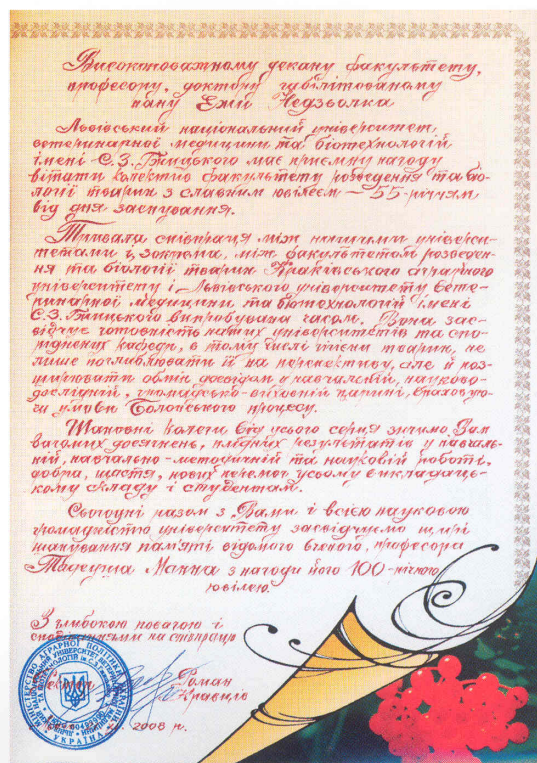 Високоповажному декану факультету,
професору, доктору габілітованому
пану Ежи Недзьолка
Львівський національний університет
ветеринарної медицини та біотехнологій
імені С.З. Гжицького має приємну нагоду
вітати колектив факультету розведення та біо-
логії тварин з славним ювілеєм – 55-річчям
від дня заснування.
Тривала співпраця між нашими універси-
тетами і, зокрема, між факультетом розведен-
ня та біології тварин Краківського аграрного
університету і Львівського університету вете-
ринарної медицини та біотехнологій імені
С.З. Гжицького випробувана часом. Вона зас-
відчує готовність наших університетів та спо-
ріднених кафедр, в тому числі гігієни тварин, не
лише поглиблювати її на перспективу, але й роз-
ширювати обмін досвідом у навчальній, науково-
дослідній, громадсько-виховній царині, враховую-
чи умови Болонського процесу.
Шановні колеги від усього серця зичимо Вам
вагомих досягнень, плідних результатів у навчаль-
ній, навчально-методичній та науковій роботі,
добра, щастя, нових перемог усьому викладаць-
кому складу і студентам.
Сьогодні разом з Вами і всією науковою
громадкістю університету засвідчуємо щирі
шанування пам'яті відомого вченого, професора
Тадеуша Манна з нагоди його 100-річного
ювілею.
З глибокою повагою і
сподіваннями на співпрацю
Ректор Роман
Кравців
2008 р.
УКРАЇНА